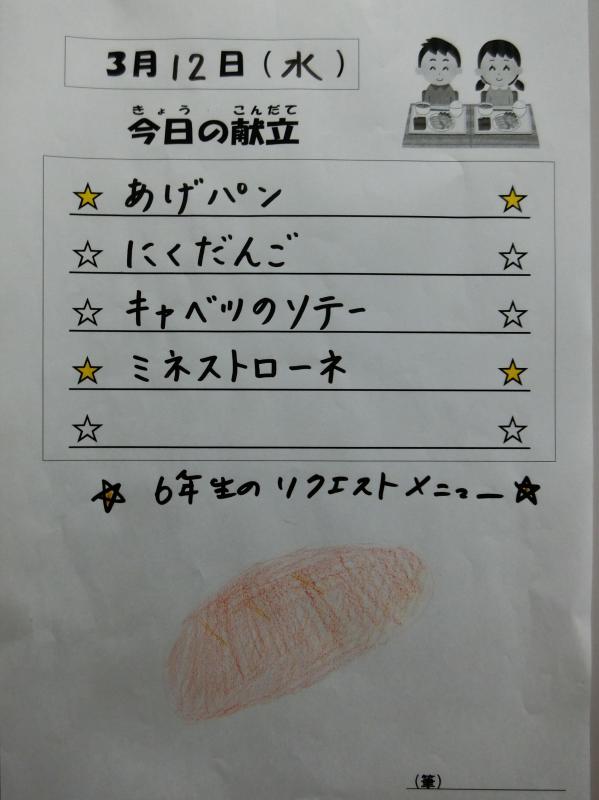 3月12日(水)
きょう こんだて
今日の献立
☆ あげパン ☆
☆ にくだんご ☆
☆ キャベツのソテー ☆
☆ ミネストローネ ☆
☆ ☆
☆ 6年生のリクエストメニュー ☆
(筆)